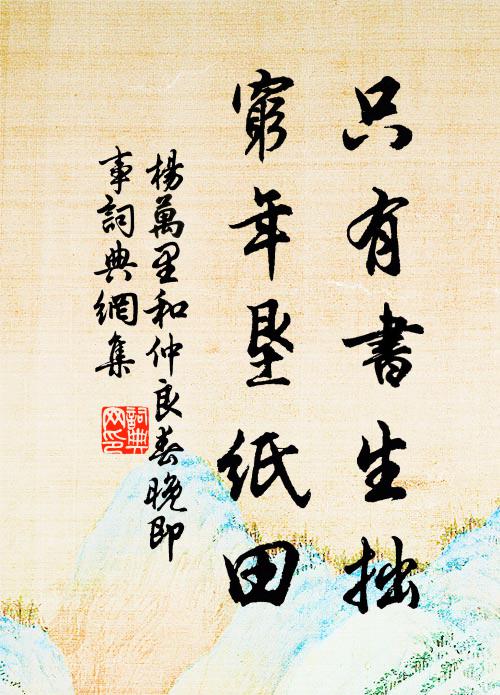 只有書生拙
窮年墾紙田
楊萬里和仲良春晚即
事詞典網集
詞典
网印